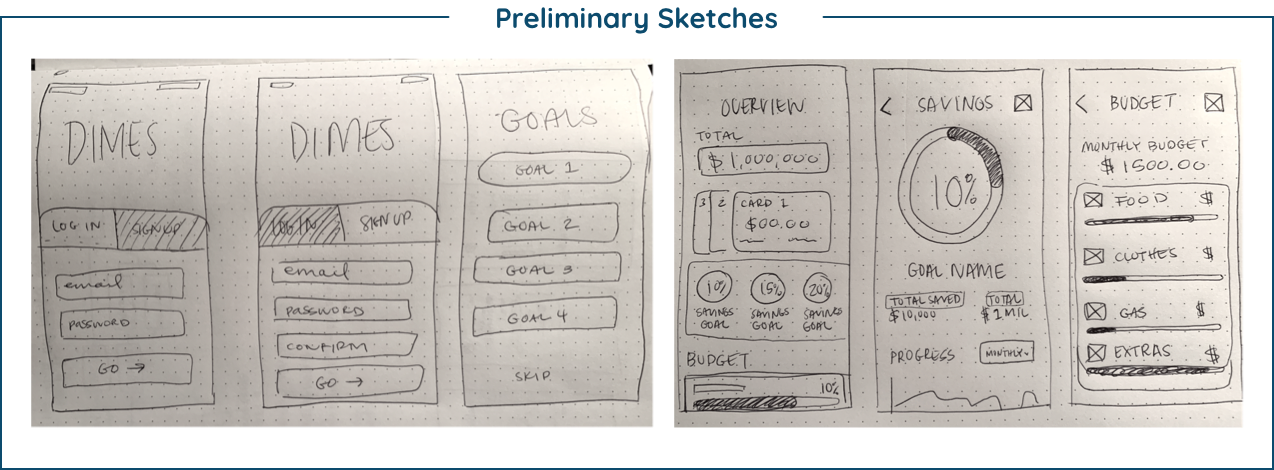 Preliminary Sketches
DIMES
LOG IN SIGN UP
email
PASSWORD
GO →
DIMES
LOG IN SIGN UP
email
PASSWORD
CONFIRM
GO →
GOALS
GOAL 1
GOAL 2
GOAL 3
GOAL 4
SKIP
OVERVIEW
TOTAL
$1,000,000
3 2 CARD 1
$00.00
10% 15% 20%
SAVINGS SAVINGS SAVINGS
GOAL GOAL GOAL
BUDGET
10%
< SAVINGS
10%
GOAL NAME
TOTAL SAVED TOTAL
$10,000 $1 MIL
PROGRESS MONTHLY
< BUDGET
MONTHLY BUDGET
$1500.00
FOOD $
CLOTHES $
GAS $
EXTRAS $